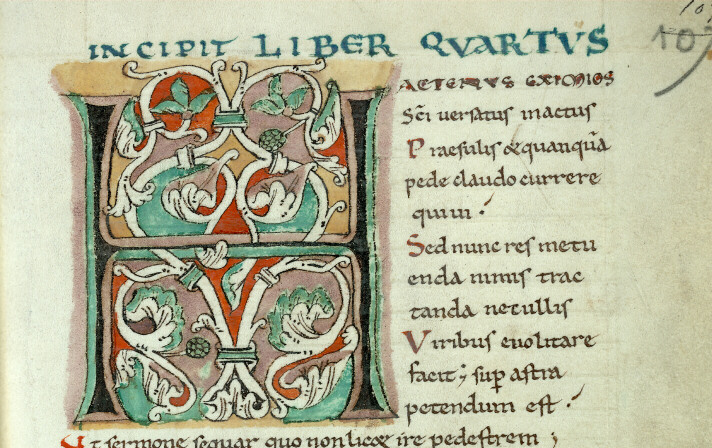 INCIPIT LIBER QVARTVS
107
HACTENVS EXIMIOS
Sc̄i uersatus in actus
Praesulis & quanquā
pede claudo currere
quiui.
Sed nunc res metu
enda nimis trac
tanda necullis
Viribus euolitare
facit; sup astra
petendum est.
Vt sermone sequar quo non lic& ire pedestrem;